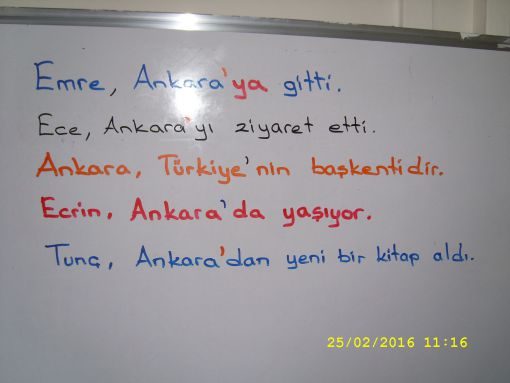 Emre, Ankara'ya gitti.
Ece, Ankara'yı ziyaret etti.
Ankara, Türkiye'nin başkentidir.
Ecrin, Ankara'da yaşıyor.
Tunç, Ankara'dan yeni bir kitap aldı.
25/02/2016 11:16